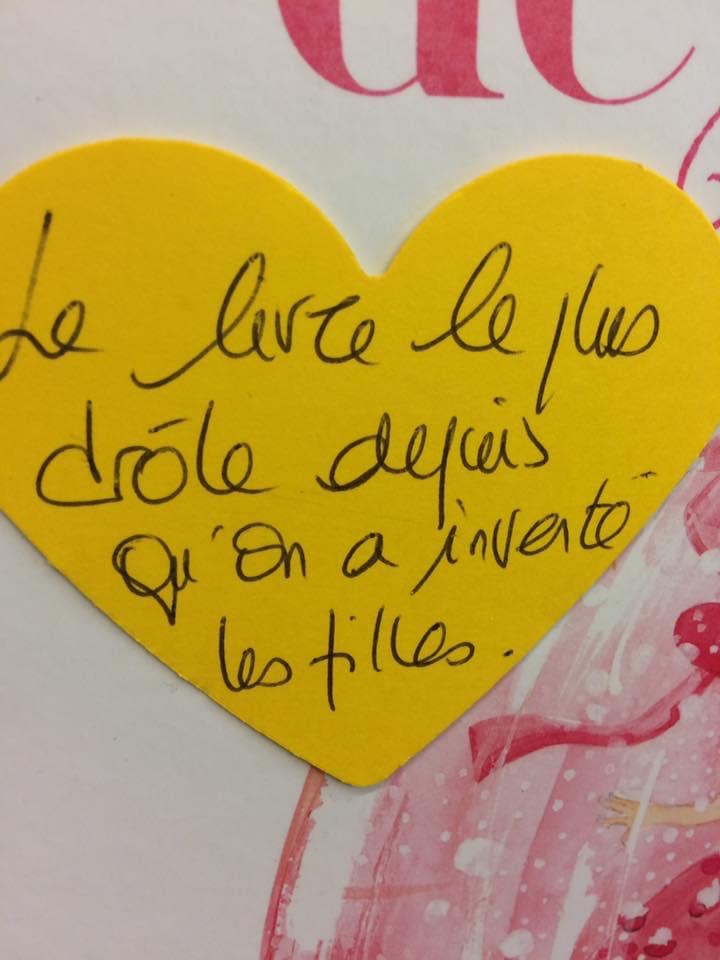 de
Le livre le plus
drôle depuis
qu'on a inventé
les filles.